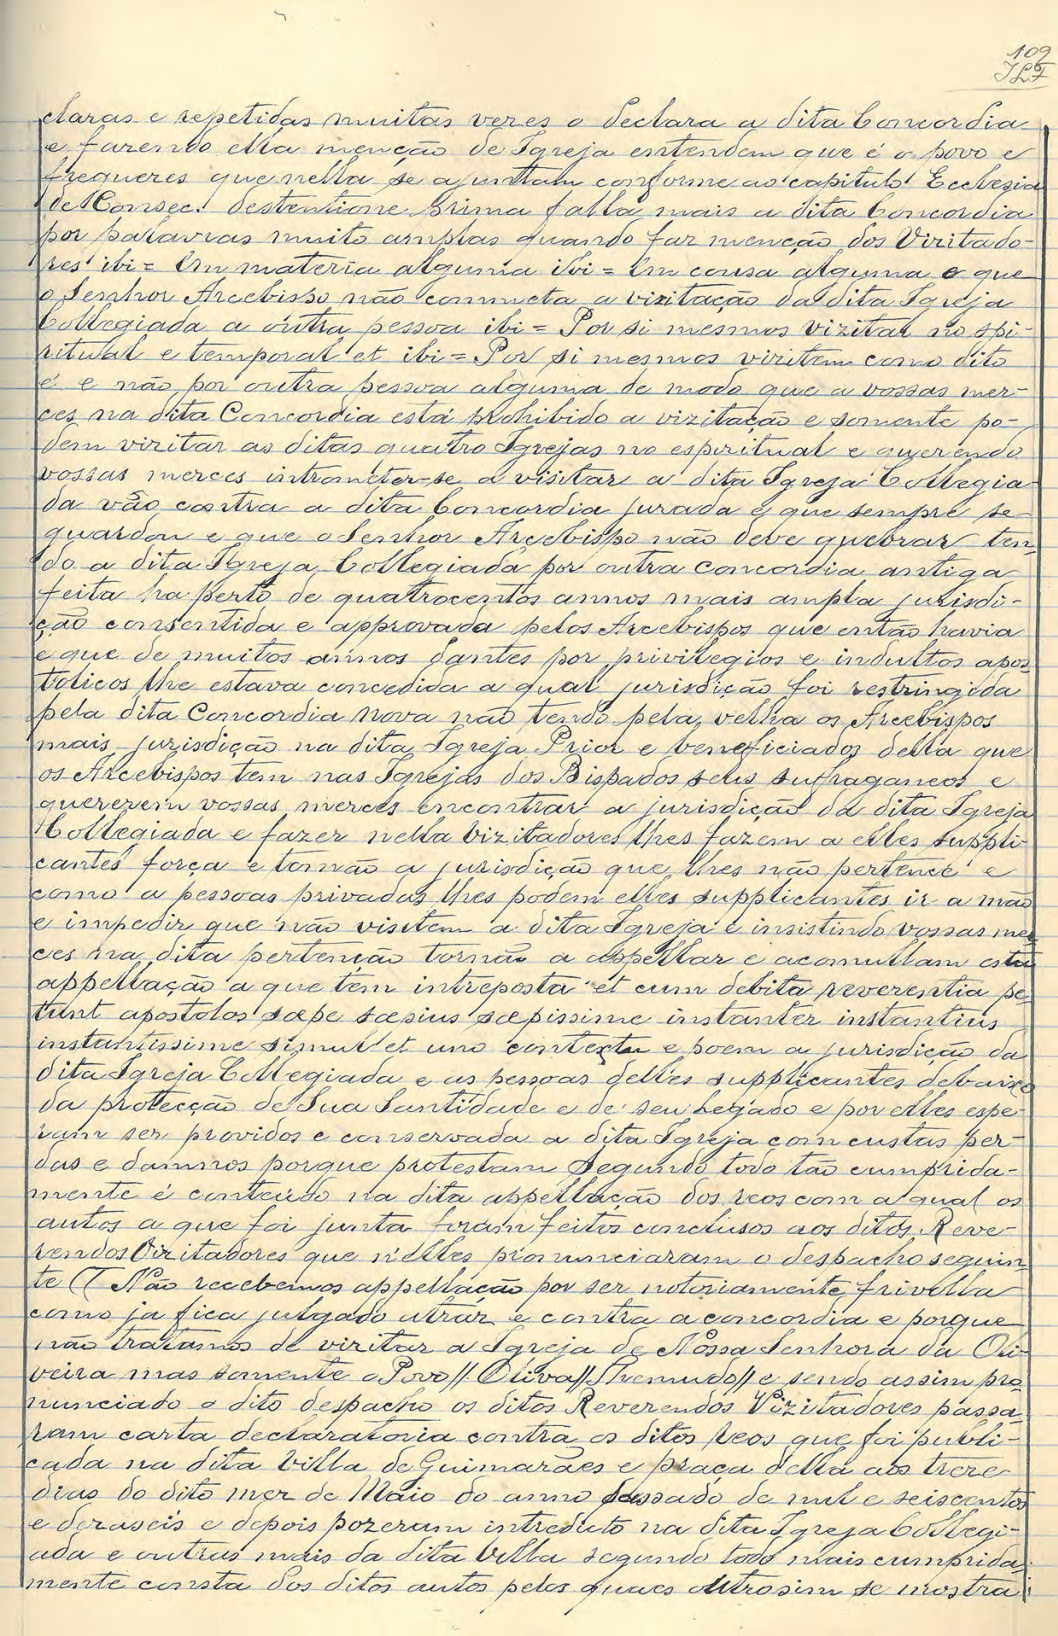 109
JLF
claras e repetidas muitas veres o declara a dita Concordia
e farendo ella menção de Igreja entendem que é o povo e
fregueres que nella se ajuntam conforme ao capitulo Ecclesia
de Consec. destentione prima falla mais a dita Concordia
por palavras muito amplas quando far menção dos Viritado-
res ibi = Em materia alguma ibi = Em cousa alguma e que
o Senhor Arcebispo não commeta a vizitação da dita Igreja
Collegiada a outra pessoa ibi = Por si mesmos vizitar no spi-
ritual e temporal et ibi = Por si mesmos viritem como dito
é e não por outra pessoa alguma de modo que a vossas mer-
ces na dita Concordia está prohibido a vizitação e somente po-
dem viritar as ditas quatro Igrejas no espiritual e querendo
vossas merces intrometer-se a visitar a dita Igreja Collegia
da vão contra a dita Concordia jurada e que sempre se
guardou e que o Senhor Arcebispo não deve quebrar ten-
do a dita Igreja Collegiada por outra concordia antiga
feita ha perto de quatrocentos annos mais ampla jurisdi-
ção consentida e approvada pelos Arcebispos que então havia
e que de muitos annos dantes por privilegios e indultos apos
tolicos lhe estava concedida a qual jurisdição foi restringida
pela dita Concordia nova não tendo pela velha os Arcebispos
mais jurisdição na dita Igreja Prior e beneficiados della que
os Arcebispos tem nas Igrejas dos Bispados seus sufraganeos e
quererem vossas merces encontrar a jurisdição da dita Igreja
Collegiada e fazer nella vizitadores lhes fazem a elles suppli
cantes força e tomão a jurisdição que lhes não pertence e
como a pessoas privadas lhes podem elles supplicantes ir a mão
e impedir que não visitem a dita Igreja e insistindo vossas mer
ces na dita pertenção tornão a appellar e acomullam esta
appellação a que tem intreposta et cum debita reverentia pe-
tunt apostolos sæpe sæsius sæpissime instanter instantius
instantissime simul et uno contextu e poem a jurisdição da
dita Igreja Collegiada e as pessoas delles supplicantes debaixo
da protecção de Sua Santidade e de seu Legado e por elles espe-
ram ser providos e conservada a dita Igreja com custas per-
das e damnos porque protestam segundo todo tão cumprida-
mente é conteúdo na dita appellação dos reos com a qual os
autos a que foi junta foram feitos conclusos aos ditos Reve-
rendos Viritadores que n'elles pronunciaram o despacho seguin
te (( Não recebemos appellação por ser notoriamente frivolla
como ja fica julgado atraz e contra a concordia e porque
não tratamos de viritar a Igreja de Nossa Senhora da Oli-
veira mas somente o Povo // Oliva // Themudo // e sendo assim pro-
nunciado o dito despacho os ditos Reverendos Vizitadores passa-
ram carta declaratoria contra os ditos reos que foi publi-
cada na dita Villa de Guimarães e praça della aos trere
dias do dito mez de Maio do anno passado de mil e seiscentos
e deraseis e depois pozeram intreduto na dita Igreja Collegi-
ada e outras mais da dita Villa segundo todo mais cumprida-
mente consta dos ditos autos pelos quaes outrosim se mostra